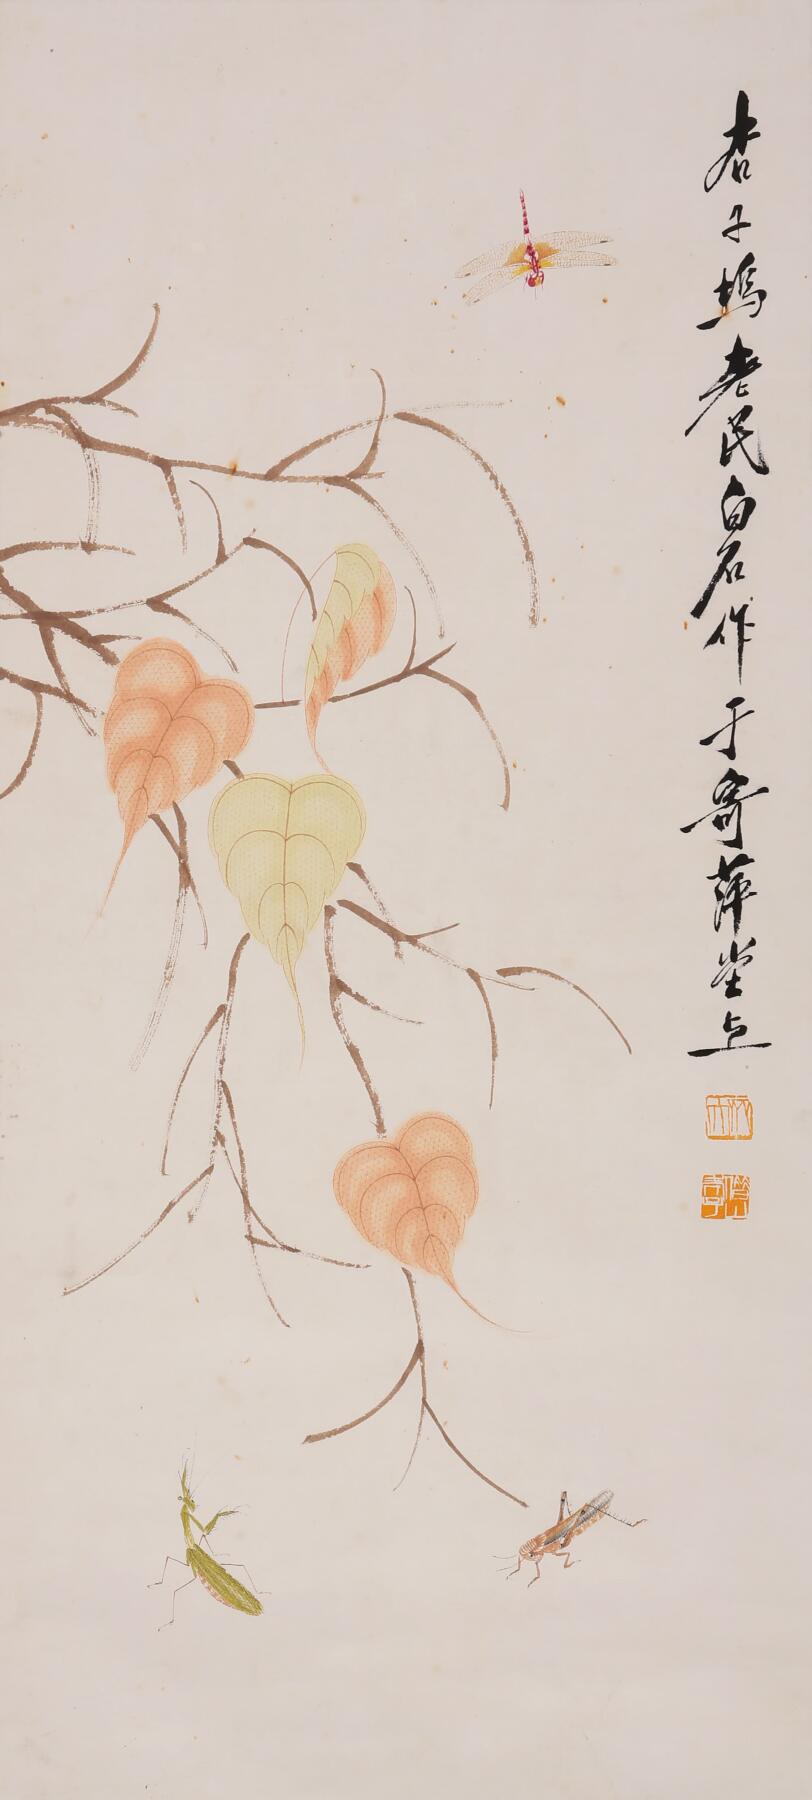 杏子塢老民白石作于寄萍堂上